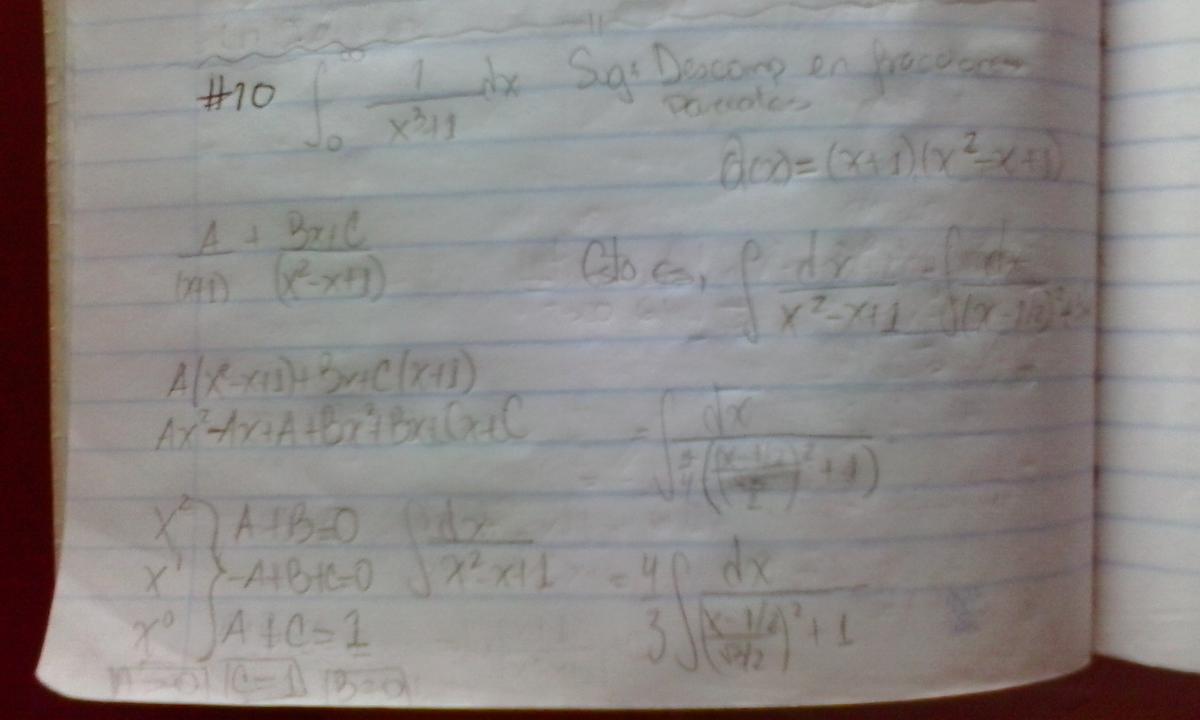 #10 ∫₀^∞ 1/(x³+1) dx Sg: Descomp en fracciones
parciales
Q(x)=(x+1)(x²-x+1)
A/(x+1) + Bx+C/(x²-x+1)
Esto es, ∫ dx/(x²-x+1) = ∫ dx/((x-1/2)²+
A(x²-x+1)+Bx+C(x+1)
Ax²-Ax+A+Bx²+Bx+Cx+C
= ∫ dx/(3/4(((x-1/2)/(√3/2))²+1))
x² } A+B=0
x¹ } -A+B+C=0
x⁰ } A+C=1
∫ dx/(x²-x+1) = 4/3 ∫ dx/(((x-1/2)/(√3/2))²+1)
A=0 C=1 B=0